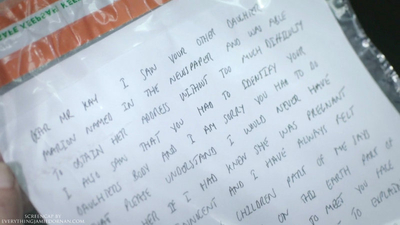 DEAR MR KAY I SAW YOUR OTHER DAUGHTER
MARION NAMED IN THE NEWSPAPER AND WAS ABLE
TO OBTAIN HER ADDRESS WITHOUT TOO MUCH DIFFICULTY
I ALSO SAW THAT YOU HAD TO IDENTIFY YOUR
DAUGHTERS BODY AND I AM SORRY YOU HAD TO DO
THAT PLEASE UNDERSTAND I WOULD NEVER HAVE
HER IF I HAD KNOW SHE WAS PREGNANT
INNOCENT AND I HAVE ALWAYS FELT
CHILDREN
ON THIS EARTH PART OF
ME
TO MEET YOU FACE
TO EXPLAIN
SCREENCAP BY
EVERYTHINGJAMIEDORNAN.COM